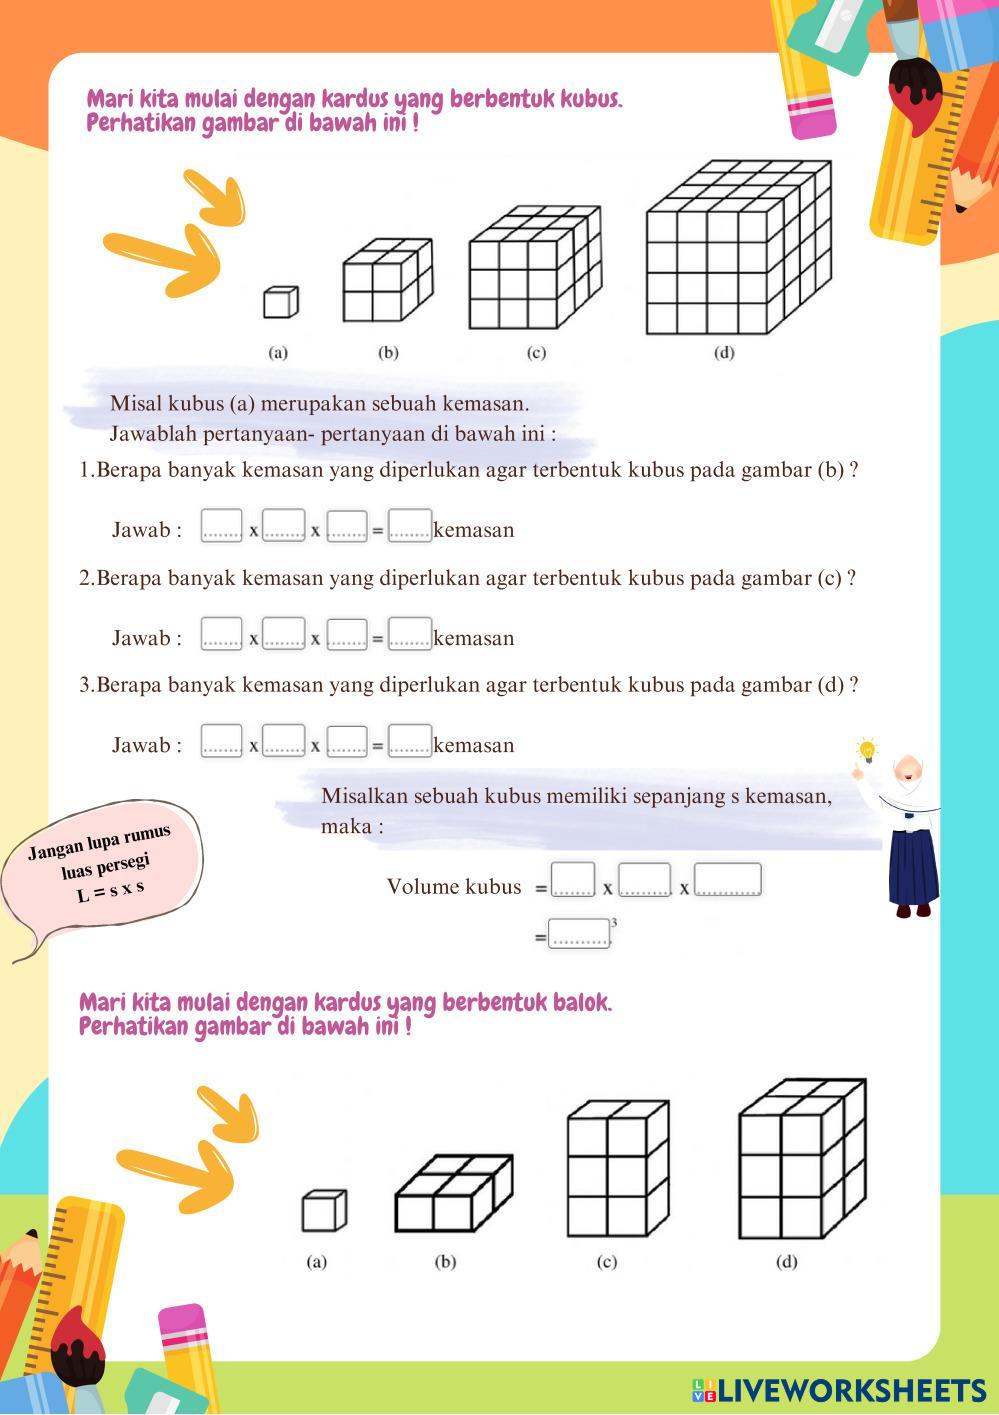 Mari kita mulai dengan kardus yang berbentuk kubus.
Perhatikan gambar di bawah ini !
(a) (b) (c) (d)
Misal kubus (a) merupakan sebuah kemasan.
Jawablah pertanyaan- pertanyaan di bawah ini :
1.Berapa banyak kemasan yang diperlukan agar terbentuk kubus pada gambar (b) ?
Jawab : ........ x ........ x ........ = ........ kemasan
2.Berapa banyak kemasan yang diperlukan agar terbentuk kubus pada gambar (c) ?
Jawab : ........ x ........ x ........ = ........ kemasan
3.Berapa banyak kemasan yang diperlukan agar terbentuk kubus pada gambar (d) ?
Jawab : ........ x ........ x ........ = ........ kemasan
Misalkan sebuah kubus memiliki sepanjang s kemasan,
maka :
Jangan lupa rumus
luas persegi
L = s x s
Volume kubus = ........ x ........ x ............
= ...........³
Mari kita mulai dengan kardus yang berbentuk balok.
Perhatikan gambar di bawah ini !
(a) (b) (c) (d)
LIVE LIVEWORKSHEETS